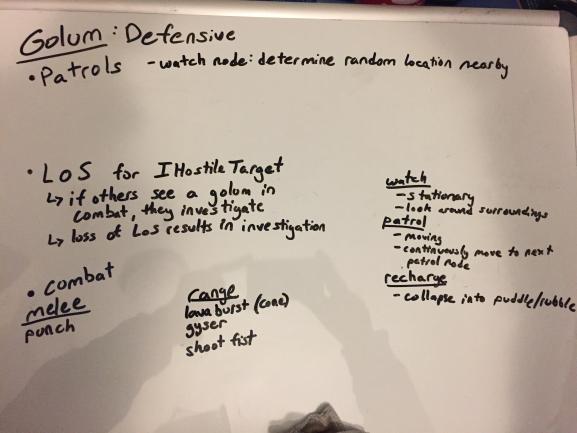 Golum: Defensive
• Patrols - watch node: determine random location nearby
• LoS for IHostileTarget
↳ if others see a golum in
combat, they investigate
↳ loss of LoS results in investigation
• combat
melee
punch
range
lava burst (cone)
gyser
shoot fist
watch
- stationary
- look around surroundings
patrol
- moving
- continuously move to next
patrol node
recharge
- collapse into puddle/rubble